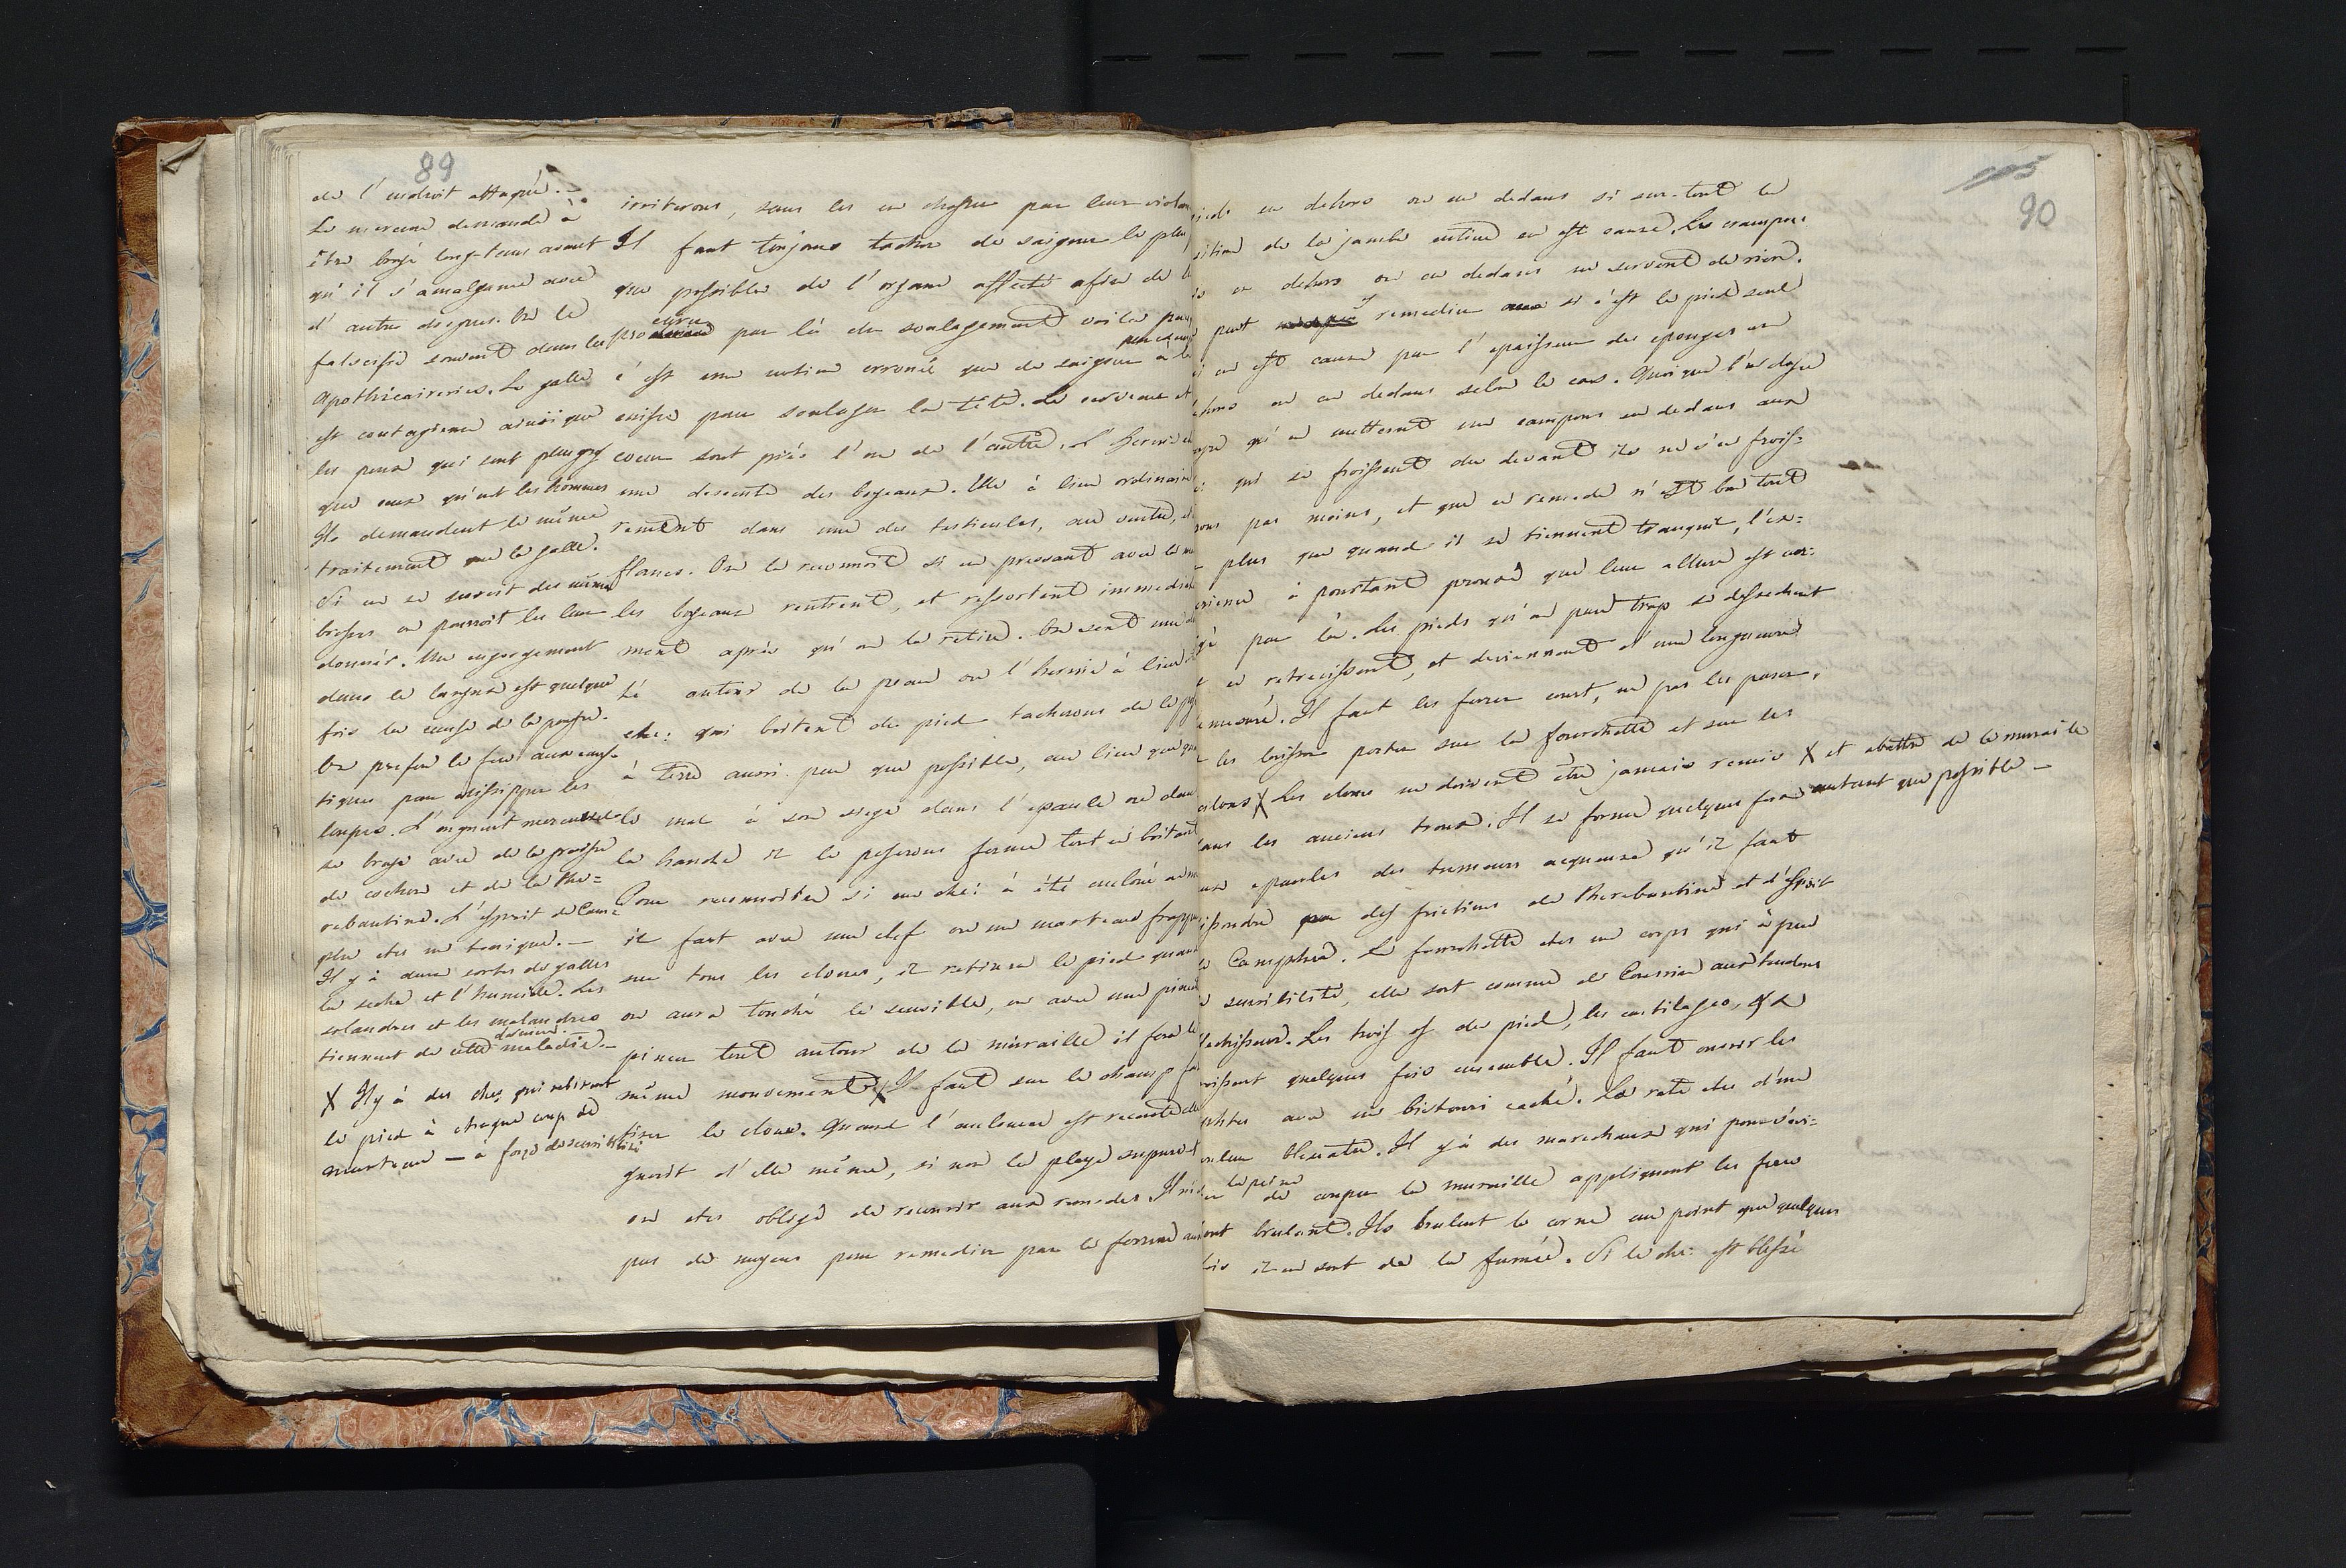 89
de l'endroit attaqué. —
Le mercure demande à
être broyé long-tems avant
qu'il s'amalgame avec
d'autres drogues. On le
falscifie souvent dans les
apothicaireries. La galle
est contagieuse ainsi que
les poux qui sont plus gros
que ceux qu'ont les hommes
Ils demandent le même
traitement que la galle.
Si on se servoit des mêmes
brosses on pourroit les leur
donner. Un engorgement
dans le larynx est quelque
fois la cause de la pousse.
On prefere le feu aux caus-
tiques pour dissipper les
loupes. L'onguent mercuriel
se broye avec de la graisse
de cochon et de la the=
rebantine. L'esprit de Cam=
phre etes un tonique. —
Il y à deux sortes de galles
la seche et l'humide. Les
solandres et les malandres
tiennent de cette derniere maladie. —
X Il y à des che: qui retirent
le pied à chaque coup de
marteau — à force de sensibilité
irriteront, sans les en chasser par leur violen
Il faut toujours tacher de saigner le plus
que possible de l'organe affecté afin de l
procurer par là du soulagement voila pour
c'est une notion erronée que de saigner à la
cuisse pour soulager la tête. Le cerveau et
coeur sont près l'un de l'autre. L'hernie e
une descente des boyeaux. Elle à lieu ordinaire
rement dans une des testicules, au ventre,
flancs. On la reconnoit si en pressant avec la m
les boyeaux rentrent, et ressortent immedia
ment après qu'on la retire. On sent une
té autour de la peau ou l'hernie à lieu
che: qui boitent du pied tacherons de le p
à terre aussi peu que possible, au lieu que qu
le mal à son siege dans l'epaule ou dan
la hanche il le poserons ferme tout en boitant
Pour reconnoitre si un che: à été encloué
il faut avec une clef ou un marteau frapp
sur tous les cloux, il retirera le pied quan
on aura touché le sensible, ou avec une pin
pincer tout autour de la muraille il fera le
même mouvement X Il faut sur le champ
tirer le cloux. Quand l'enclouure est recente elle
guerit d'elle même, si non la playe supure et
on etes obligé de recourir aux remedes Il n'e
pas de moyens pour remedier par la ferrure au
90
pieds en dehors ou en dedans si sur-tout la
de la jambe entiere en est cause. Les crampons
en dehors ou en dedans ne servent de rien.
peut y remedier si c'est le pied seul
en est cause par l'epaisseur des eponges en
dehors ou en dedans selon le cas. Quoique l'on
qu'en mettant un crampons en dedans aux
qui se froissent du devant ils ne s'en frois=
pas moins, et que ce remede n'est bon tout
plus que quand il se tiennent tranquil, l'ex=
à pourtant prouvé que leur allure est
par là. Les pieds qu'on pare trop se dessechent
et retrecissent, et deviennent d'une longueur
Il faut les ferrer court, ne pas les parer,
les laisser porter sur la fourchette et sur les
talons X Les cloux ne doivent être jamais remis X et abattre de la muraille
dans les anciens troux. Il se forme quelques fois autant que possible —
epaules des tumeurs aqueuses qu'il faut
par des frictions de therebantine et d'esprit
de Camphre. La fourchette etes un corps qui à peu
de sensibilité, elle sert comme de Coussin aux tendons
flechisseurs. Les trois os du pied, les cartilages, &a
quelques fois ensemble. Il faut ouvrir les
avec un bistouri caché. La rate etes d'une
couleur bleuatre. Il y à des marechaux qui pour s'evi=
ter la peine de couper la muraille appliquent les fers
brulant. Ils brulent la corne au point que quelques
fois il en sort de la fumée. Si le che: est blessé